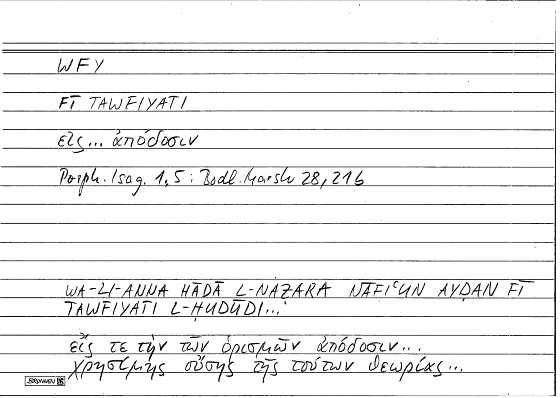 WFY
FĪ TAWFIYATI
εἰς... ἀπόδοσιν
Porph. Isag. 1,5 : Bodl. Marsh 28, 216
WA-LI-ANNA HĀḎĀ L-NAẒARA NĀFIʿUN AYḌAN FĪ
TAWFIYATI L-ḤUDŪDI...
εἴς τε τὴν τῶν ὁρισμῶν ἀπόδοσιν...
χρησίμης οὔσης τῆς τούτων θεωρίας...